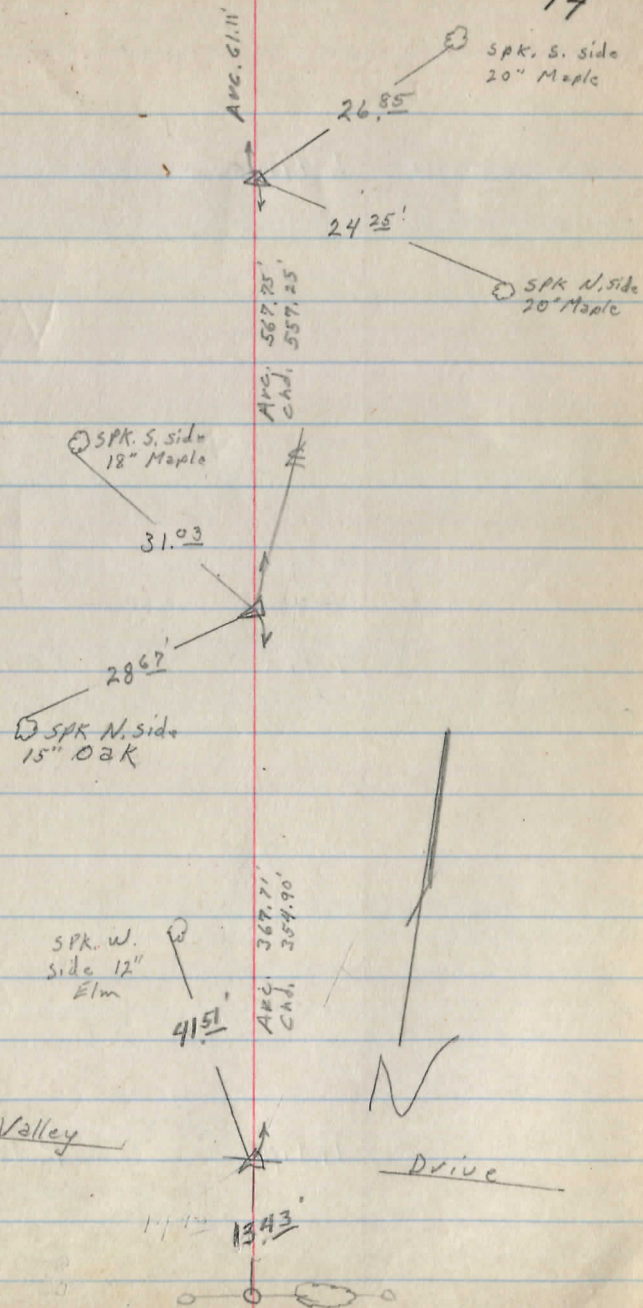 Arc. 61.11'
spk. S. side
20" Maple
26.85
24 25'
SPK N. side
20" Maple
Arc. 567.75'
Chd. 557.25'
SPK. S. side
18" Maple
31.03
28 67'
SPK N. side
15" Oak
Arc. 367.71'
Chd. 354.90'
SPK. W.
side 12"
Elm
41.51'
N
Valley
Drive
13.43'